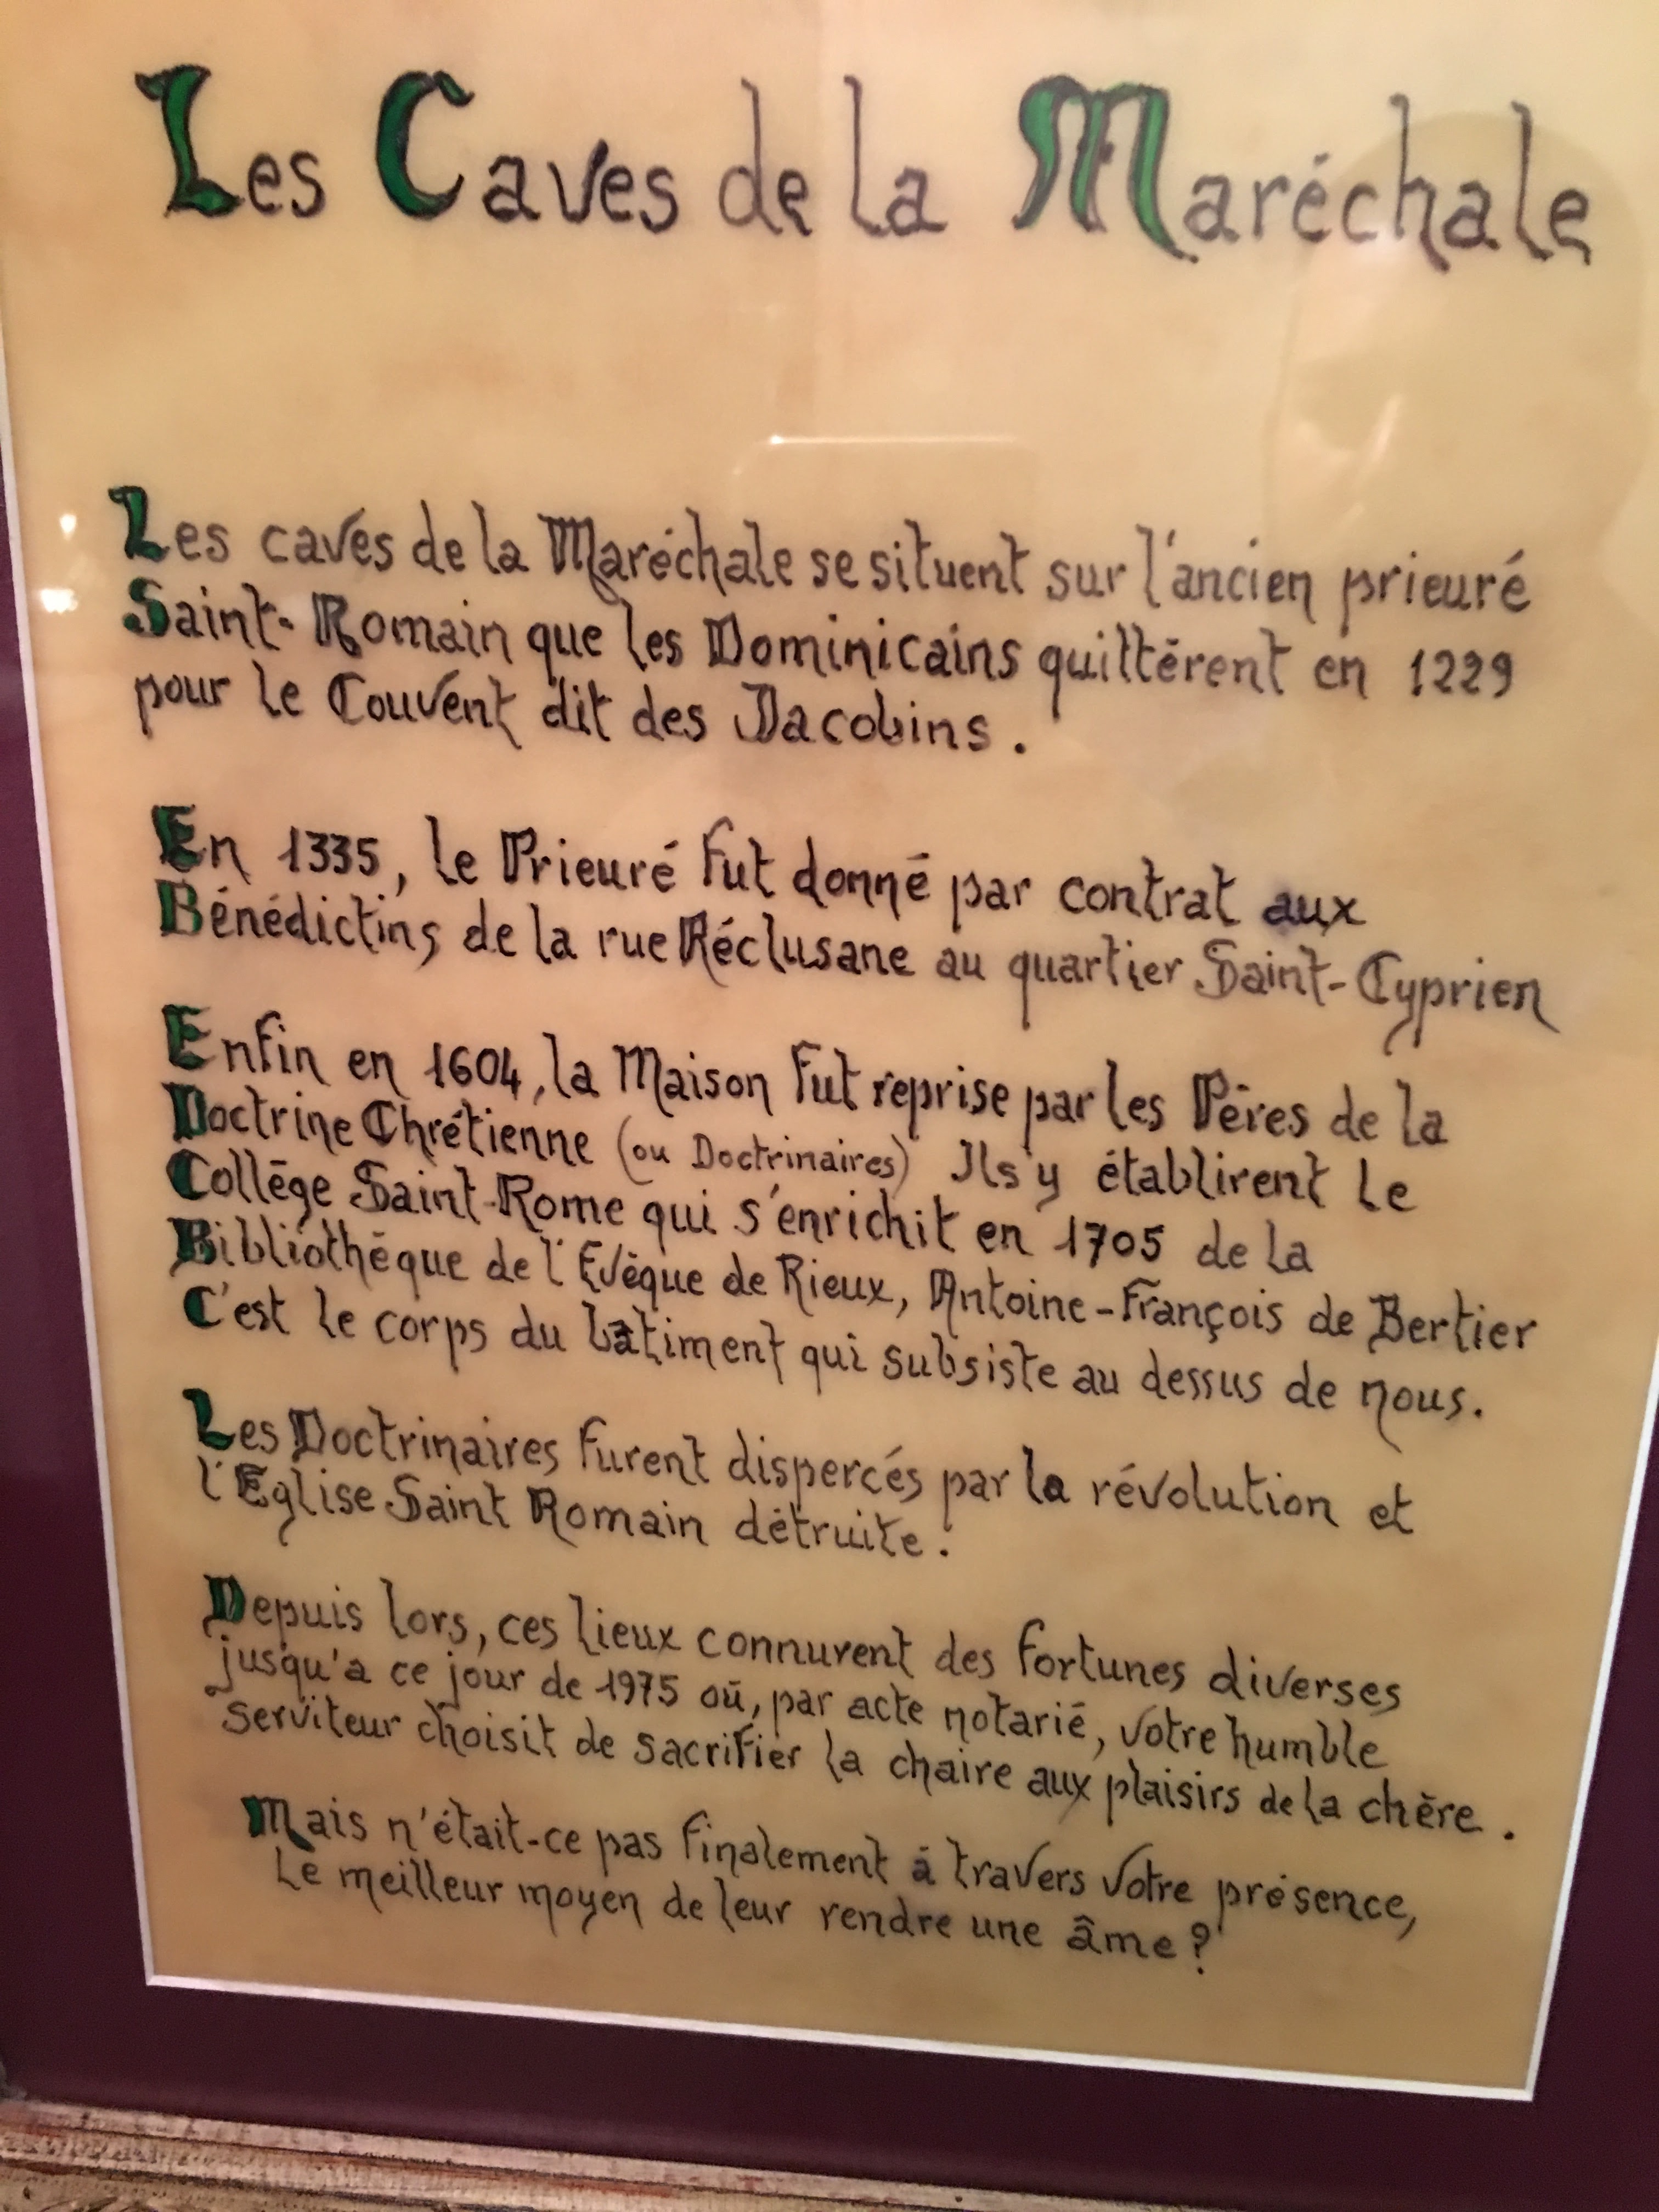 Les Caves de la Maréchale
Les caves de la Maréchale se situent sur l'ancien prieuré
Saint-Romain que les Dominicains quittèrent en 1229
pour le Couvent dit des Jacobins.
En 1335, le Prieuré fut donné par contrat aux
Bénédictins de la rue Réclusane au quartier Saint-Cyprien
Enfin en 1604, la Maison fut reprise par les Pères de la
Doctrine Chrétienne (ou Doctrinaires) Ils y établirent le
Collège Saint-Rome qui s'enrichit en 1705 de la
Bibliothèque de l'Evêque de Rieux, Antoine-François de Bertier
C'est le corps du bâtiment qui subsiste au dessus de nous.
Les Doctrinaires furent dispercés par la révolution et
l'Eglise Saint Romain détruite.
Depuis lors, ces lieux connurent des fortunes diverses
jusqu'a ce jour de 1975 où, par acte notarié, votre humble
serviteur choisit de sacrifier la chaire aux plaisirs de la chère.
Mais n'était-ce pas finalement à travers votre présence,
Le meilleur moyen de leur rendre une âme?